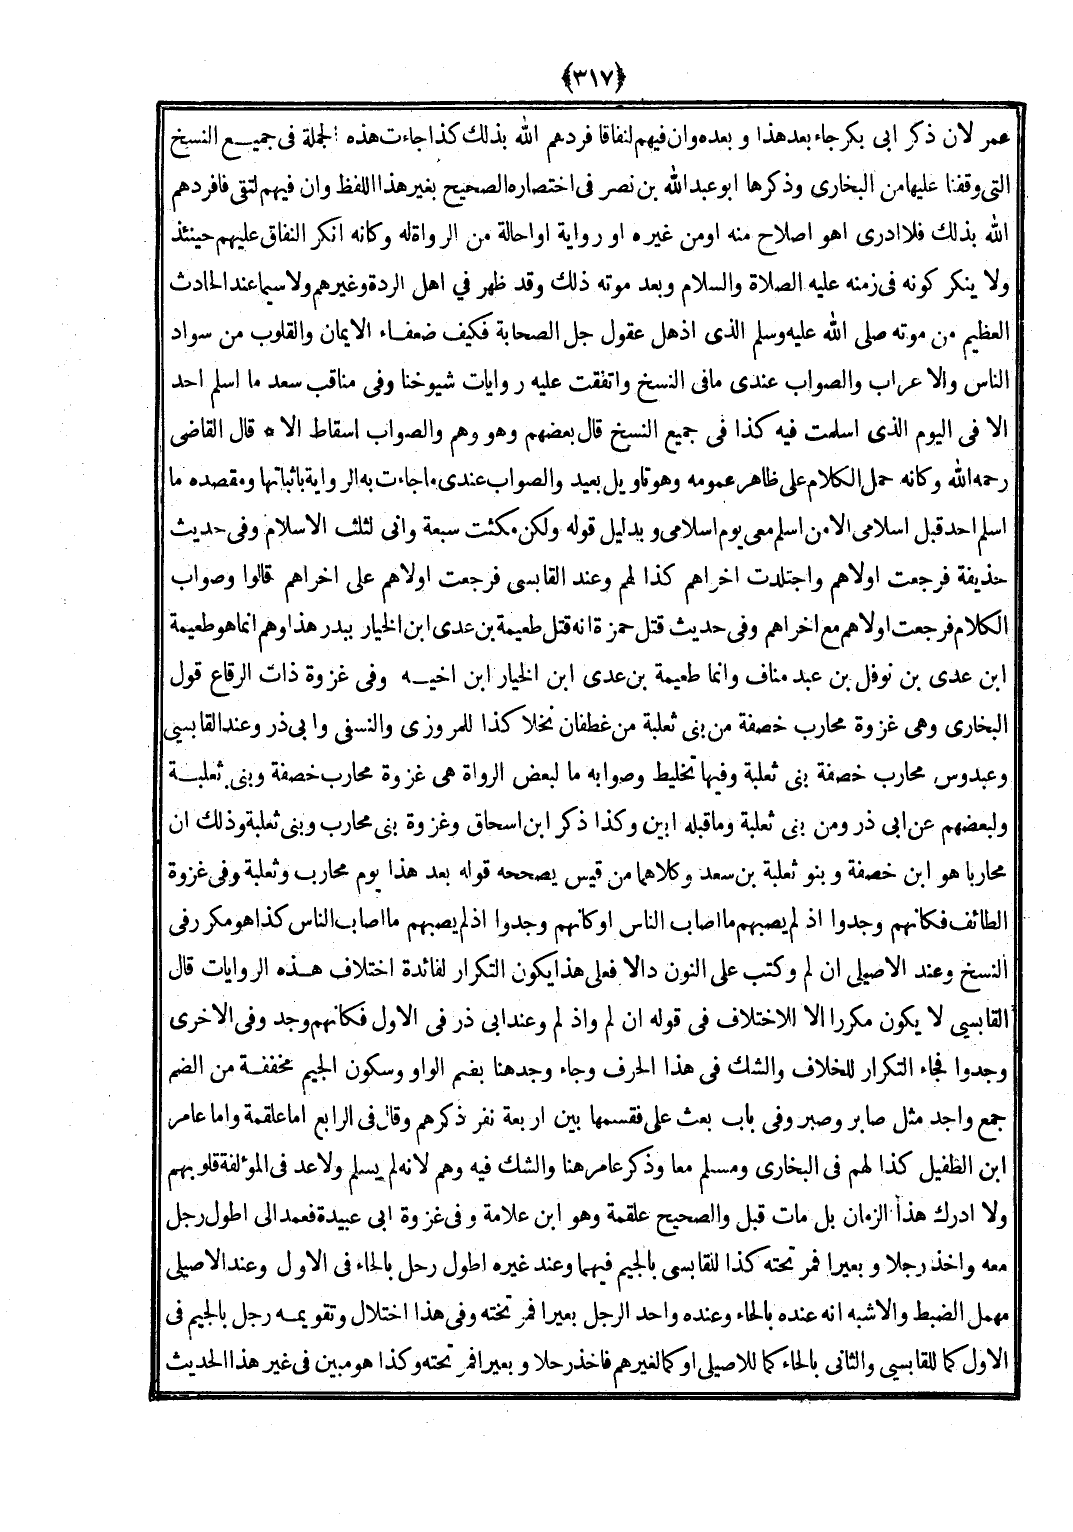 ﴿٣١٧﴾
عمر لان ذكر ابى بكر جاء بعد هذا و بعده وان فيهم لنفاقا فردهم الله بذلك كذا جاءت هذه الجملة فى جميع النسخ
التى وقفنا عليها من البخارى وذكرها ابو عبد الله بن نصر فى اختصاره الصحيح بغير هذا اللفظ وان فيهم لتقى فافردهم
الله بذلك فلا ادرى اهو اصلاح منه اومن غيره او رواية او احالة من الرواة له وكانه انكر النفاق عليهم حينئذ
ولا ينكر كونه فى زمنه عليه الصلاة والسلام وبعد موته ذلك وقد ظهر في اهل الردة وغيرهم ولاسيما عند الحادث
العظيم من موته صلى الله عليه وسلم الذى اذهل عقول جل الصحابة فكيف ضعفاء الايمان والقلوب من سواد
الناس والاعراب والصواب عندى مافى النسخ واتفقت عليه روايات شيوخنا وفى مناقب سعد ما اسلم احد
الا فى اليوم الذى اسلمت فيه كذا فى جميع النسخ قال بعضهم وهو وهم والصواب اسقاط الا * قال القاضى
رحمه الله وكانه حمل الكلام على ظاهر عمومه وهو تاويل بعيد والصواب عندى ماجاءت به الرواية باثباتها ومقصده ما
اسلم احد قبل اسلامى الا من اسلم معى يوم اسلامى و بدليل قوله ولكن مكثت سبعة وانى لثلث الاسلام وفى حديث
حذيفة فرجعت اولاهم واجتلدت اخراهم كذا لهم وعند القابسى فرجعت اولاهم على اخراهم قالوا وصواب
الكلام فرجعت اولاهم مع اخراهم وفى حديث قتل حمزة انه قتل طعيمة بن عدى ابن الخيار ببدر هذا وهم انما هو طعيمة
ابن عدى بن نوفل بن عبد مناف وانما طعيمة بن عدى ابن الخيار ابن اخيه وفى غزوة ذات الرقاع قول
البخارى وهى غزوة محارب خصفة من بنى ثعلبة من غطفان نخلا كذا للمروزى والنسفى وابى ذر وعند القابسى
وعبدوس محارب خصفة بنى ثعلبة وفيها تخليط وصوابه ما لبعض الرواة هى غزوة محارب خصفة وبنى ثعلبة
ولبعضهم عن ابى ذر ومن بنى ثعلبة وماقبله ابين وكذا ذكر ابن اسحاق وغزوة بنى محارب وبنى ثعلبة وذلك ان
محاربا هو ابن خصفة و بنو ثعلبة بن سعد وكلاهما من قيس يصححه قوله بعد هذا يوم محارب وثعلبة وفى غزوة
الطائف فكانهم وجدوا اذ لم يصبهم ما اصاب الناس اوكانهم وجدوا اذ لم يصبهم ما اصاب الناس كذا هو مكرر فى
النسخ وعند الاصيلى ان لم وكتب على النون دالا فعلى هذا يكون التكرار لفائدة اختلاف هذه الروايات قال
القابسى لا يكون مكررا الا للاختلاف فى قوله ان لم واذ لم وعند ابى ذر فى الاول فكانهم وجد وفى الاخرى
وجدوا فجاء التكرار للخلاف والشك فى هذا الحرف وجاء وجد هنا بضم الواو وسكون الجيم مخففة من الضم
جمع واجد مثل صابر وصبر وفى باب بعث على فقسمها بين اربعة نفر ذكرهم وقال فى الرابع اما علقمة واما عامر
ابن الطفيل كذا لهم فى البخارى ومسلم معا وذكر عامر هنا والشك فيه وهم لانه لم يسلم ولاعد فى المؤلفة قلوبهم
ولا ادرك هذا الزمان بل مات قبل والصحيح علقمة وهو ابن علامة وفى غزوة ابى عبيدة فعمد الى اطول رجل
معه واخذ رجلا و بعيرا فمر تحته كذا للقابسى بالجيم فيهما وعند غيره اطول رحل بالحاء فى الاول وعند الاصيلى
مهمل الضبط والاشبه انه عنده بالحاء وعنده واحد الرجل بعيرا فمر تحته وفى هذا اختلال وتقويمه رجل بالجيم فى
الاول كما للقابسى والثانى بالحاء كما للاصيلى اوكما لغيرهم فاخذ رحلا و بعيرا فمر تحته وكذا هو مبين فى غير هذا الحديث